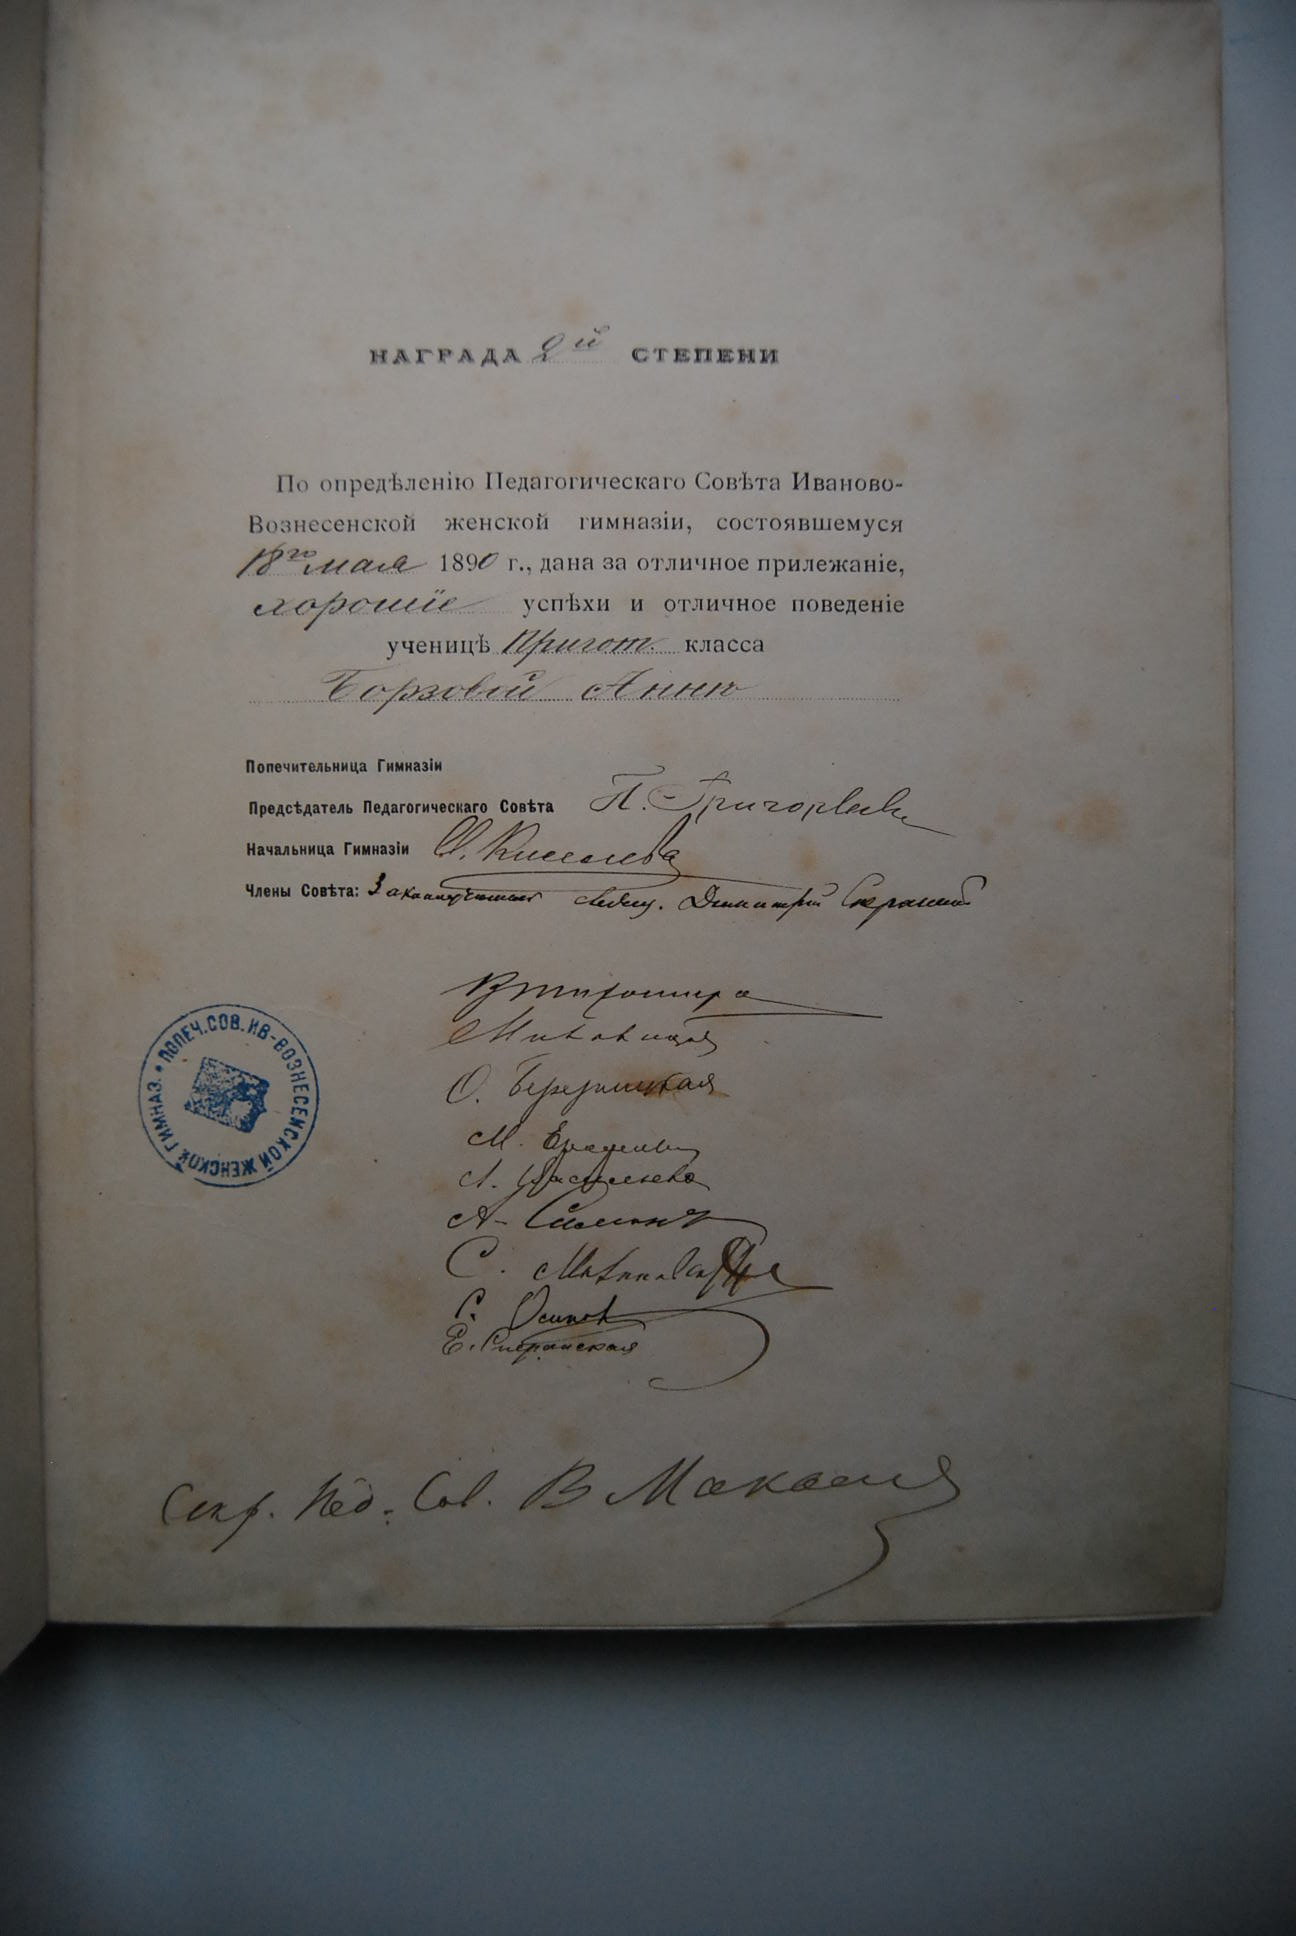 НАГРАДА 2й СТЕПЕНИ
По опредѣленію Педагогическаго Совѣта Иваново-
Вознесенской женской гимназіи, состоявшемуся
18го мая 1890 г., дана за отличное прилежаніе,
хорошіе успѣхи и отличное поведеніе
ученицѣ Пригот. класса
Борзовой Аннѣ
Попечительница Гимназіи
Предсѣдатель Педагогическаго Совѣта П. Григорьевъ
Начальница Гимназіи Киселева
Члены Совѣта: Законоучитель Дмитрій
В Тихомира
О.
М.
Л. Васильева
А.
С.
С. Осиповъ
Е. Сперанская
Секр. Пед. Сов. В
ПОПЕЧ. СОВ. ИВ-ВОЗНЕСЕНСКОЙ ЖЕНСКОЙ ГИМНАЗ.